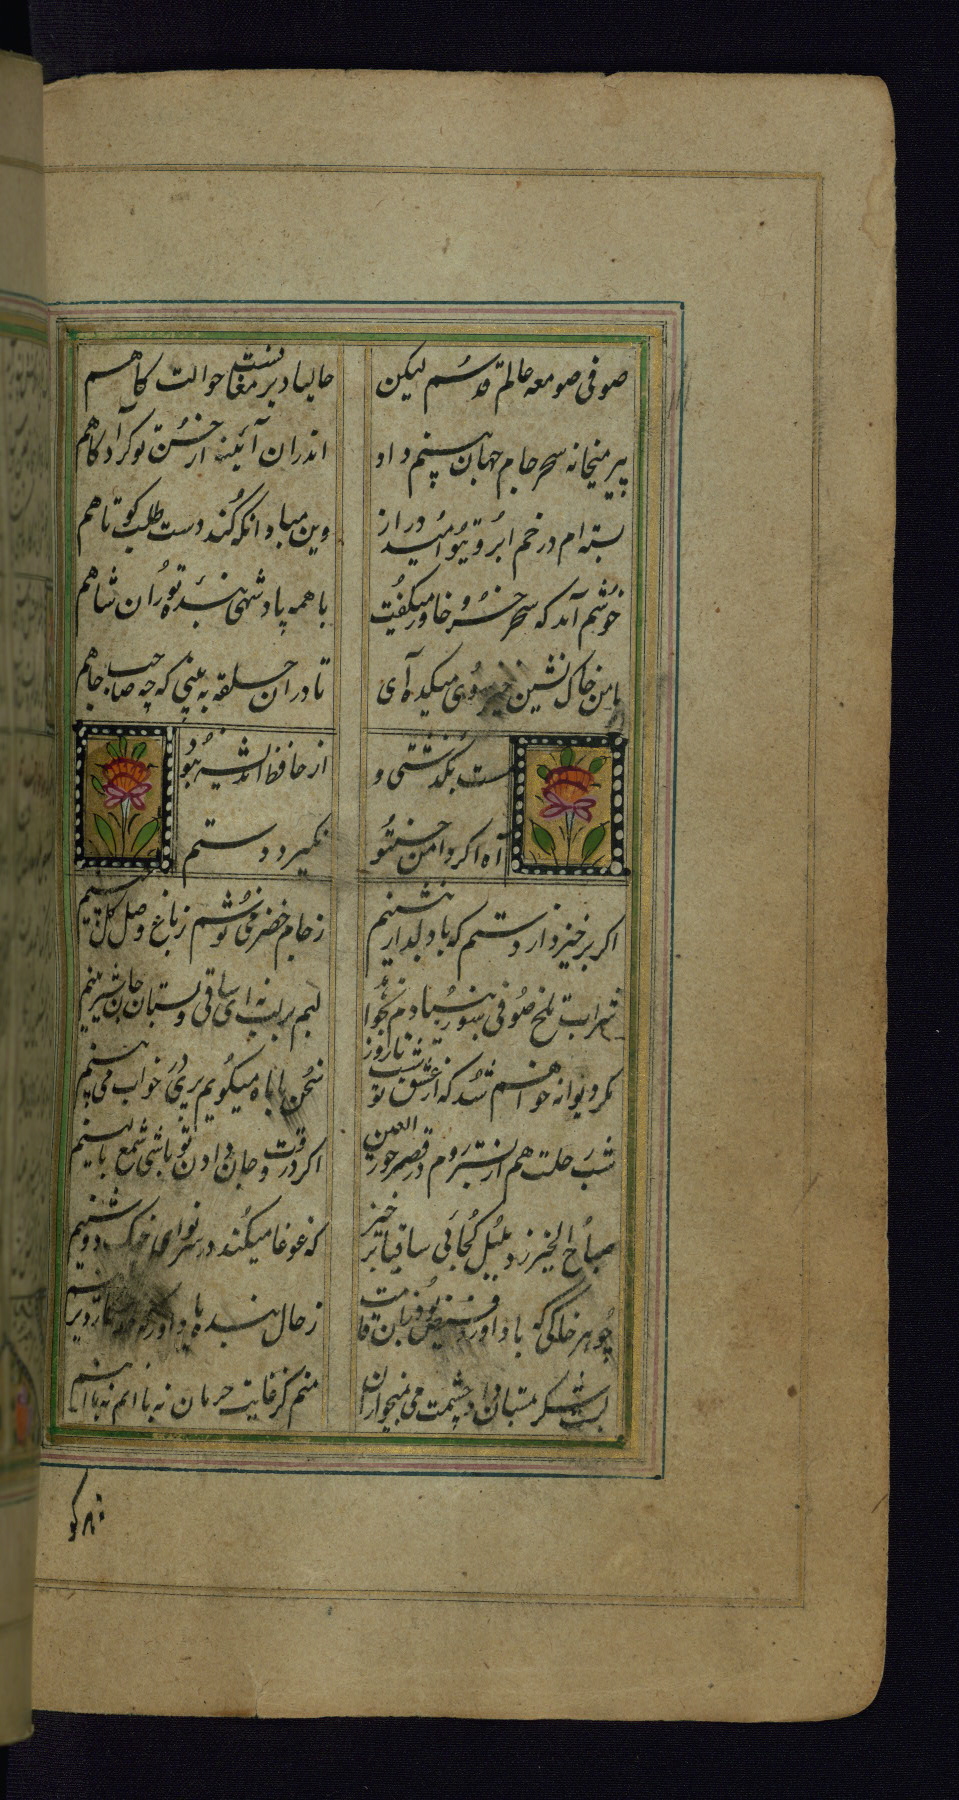 صوفی صومعه عالم قدسم لیکن
حالیا دیر مغانست حوالت کاهم
پیر میخانه سحر جام جهان بینم داد
اندران آئینه از حسن تو کرد آکاهم
بسته ام در خم ابروتو امید دراز
وین مبادا نکه کند دست طلب کوتاهم
خوشم آمد که سحر خسرو خاور میکفت
با همه پادشهی بنده توران شاهم
با من خاک نشین خیز سوی میکده آی
تا دران حلقه به بینی که چه صاحب جاهم
مست بکذشتی و
از حافظ اندیشه نبود
آه اکر دامن حسن تو
نکیرد دستم
اکر برخیزد از دستم که با دلدار بنشینم
ز جام خضر می نوشم ز باغ وصل کل چینم
شراب تلخ صوفی سوز بنیادم نخواهد
لبم بر لب نه ای ساقی و بستان جان شیرینم
مکر دیوانه خواهم شد که از عشق تو شب تا روز
سخن با ماه میکویم پری در خواب می بینم
شب رحلت هم از بستر روم در قصر حور العین
اکر در وقت جان دادن تو باشی شمع بالینم
صباح الخیر زد بلبل کجائی ساقیا برخیز
که غوغا میکند در سر نوای خنک دوشینم
چو هر خاکی که باد آورد فیضی بود زانعامت
ز حال بنده یاد آور که خدمتکار دیرینم
لبت شکر بمستان داد و چشمت می بمیخواران
منم کز غایت حرمان نه با آنم نه با اینم